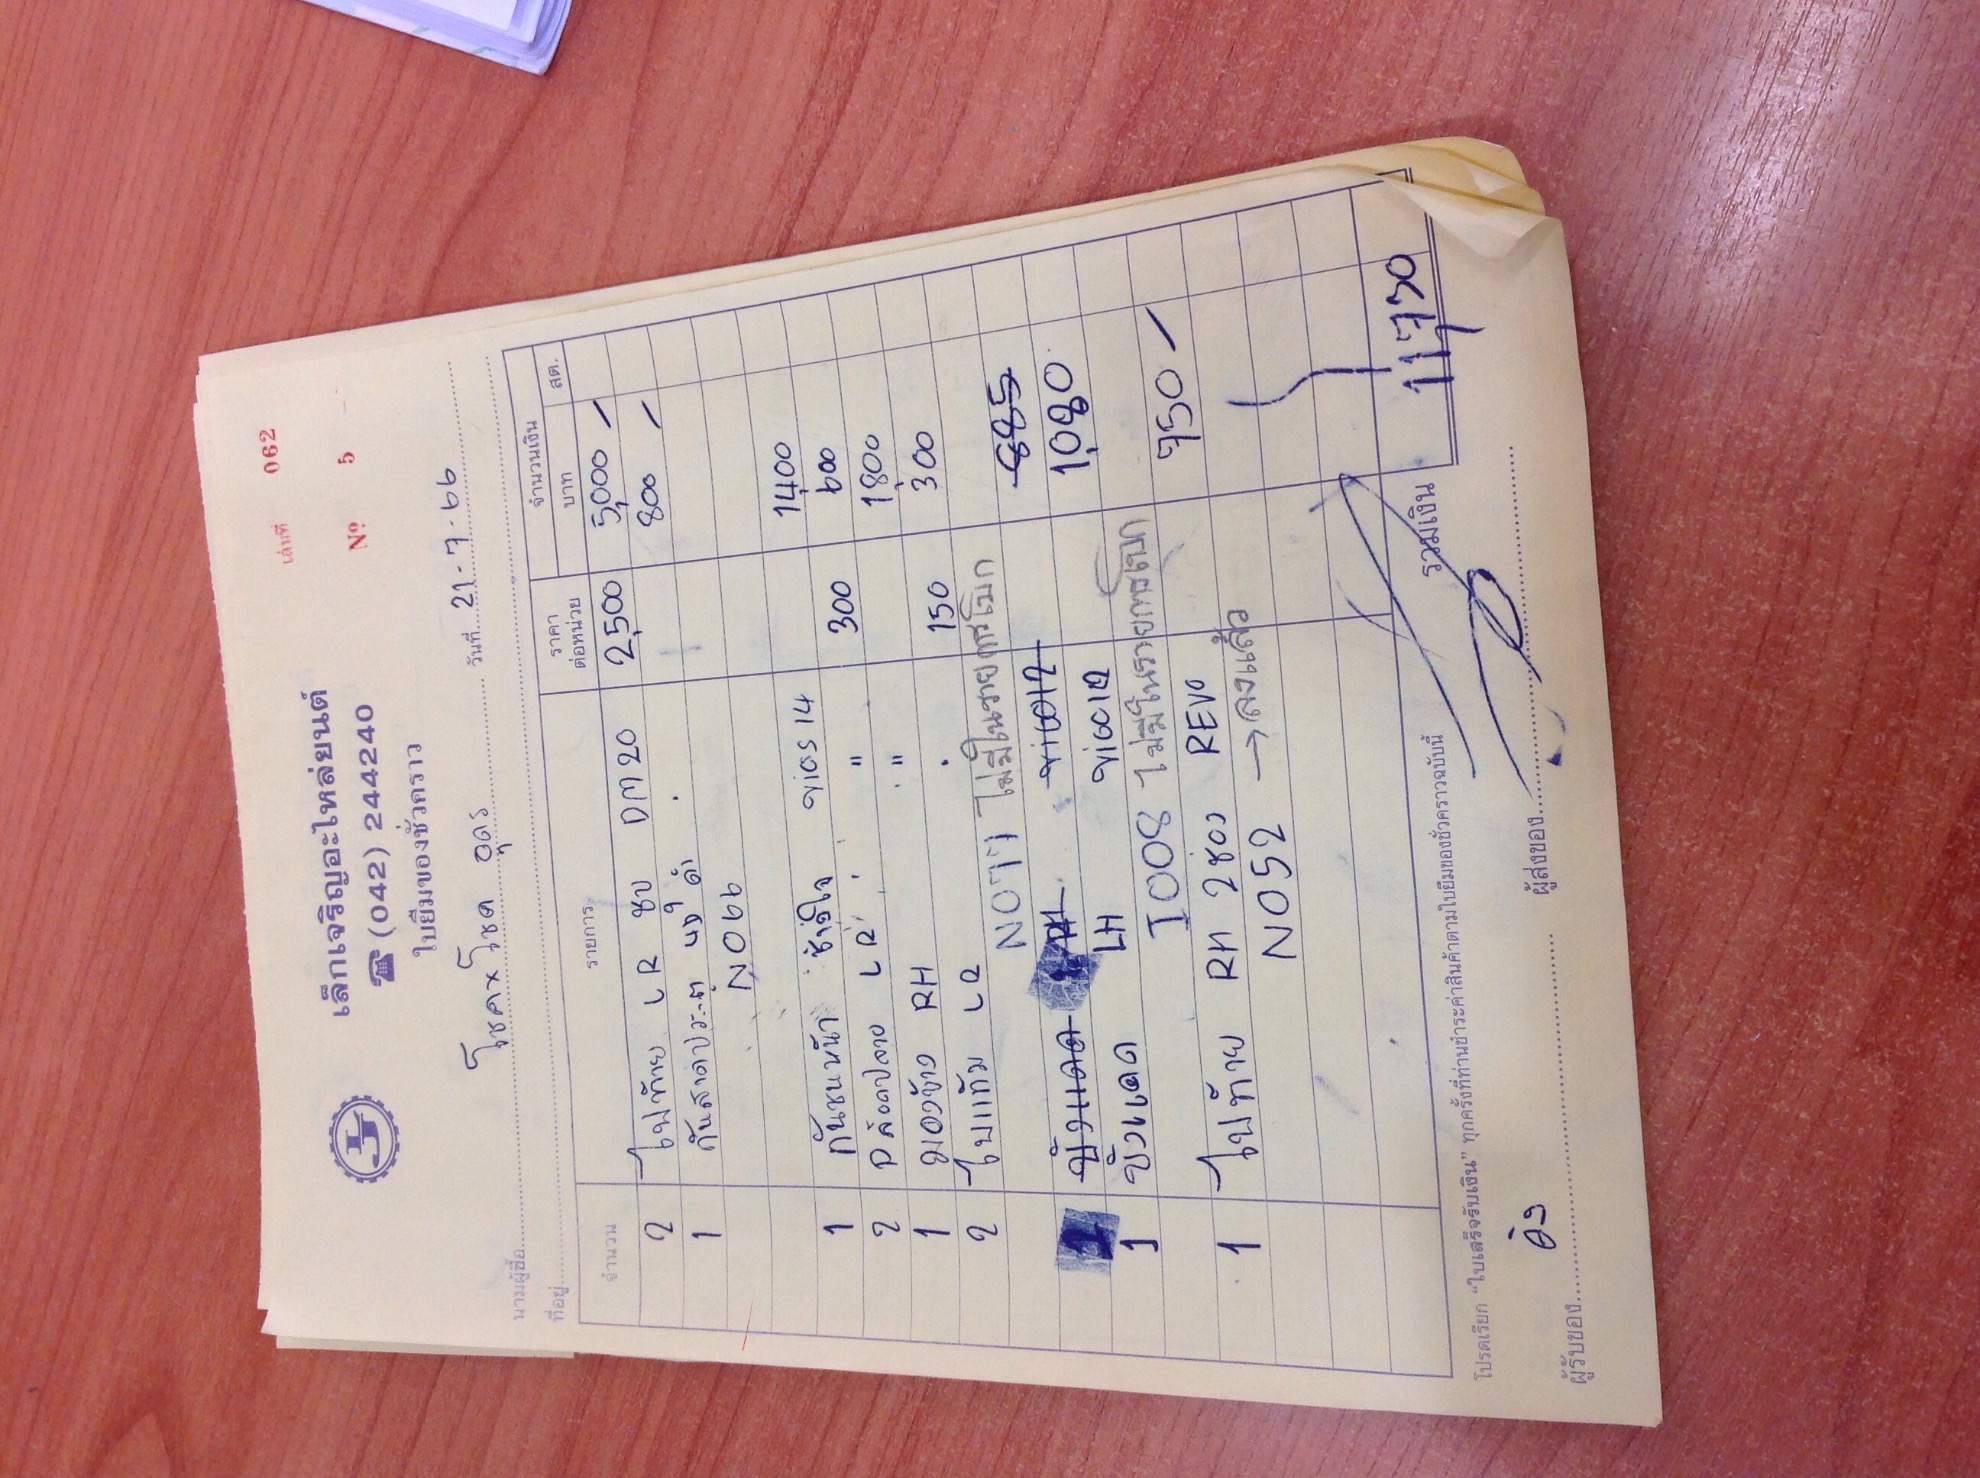 เล่มที่ 062
เล็กเจริญอะไหล่ยนต์
☎ (042) 244240
ใบยืมของชั่วคราว
Nº 5
นามผู้ซื้อ โชคพโชค อุดร วันที่ 21-7-66
ที่อยู่
จำนวน รายการ ราคาต่อหน่วย จำนวนเงิน
บาท สต.
2 ไฟท้าย LR ชบ DM20 2,500 5,000
1 กันสาดประตู 4ใบ ดำ 800
N066
1 กันชนหน้า VIOS 14 1,400
2 LR " 300 600
1 มองข้าง RH " 1,800
2 ใบแก้ม LR 150 300
N077 ไม่มีในรายการโบก
1 บังแดด RH 885
1 บังแดด LH 1,080
I008 ไม่มีในรายการโบก
1 ไฟท้าย RH 2ช่อง REVO 750
N052 → ลงแล้ว
รวมเงิน 11,730
โปรดเรียก "ใบเสร็จรับเงิน" ทุกครั้งที่ท่านชำระค่าสินค้าตามใบยืมของชั่วคราวฉบับนี้
ผู้รับของ ผู้ส่งของ